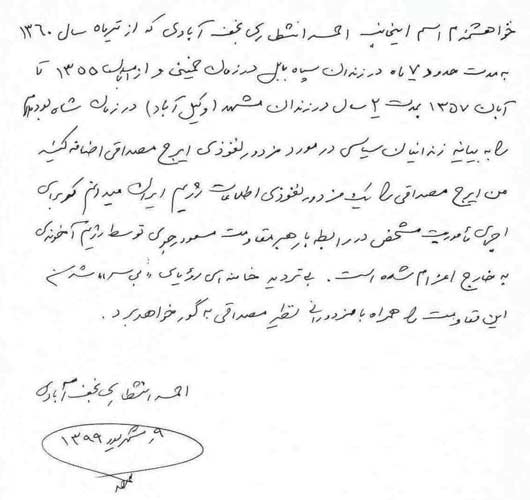 خواهشمندم اسم اینجانب احمد انتظاری نجف آبادی که از تیرماه سال ۱۳۶۰
به مدت حدود ۷ ماه در زندان سپاه بابل در زمان خمینی و از ۱۳۵۵ تا
آبان ۱۳۵۷ بمدت ۲ سال در زندان مشهد (وکیل آباد) در زمان شاه بوده‌ام
را به بیانیه زندانیان سیاسی در مورد مزدور نفوذی ایرج مصداقی اضافه کنید
من ایرج مصداقی را یک مزدور نفوذی اطلاعات رژیم ایران میدانم که برای
اجرای مأموریت مشخص در رابطه با رهبر مقاومت مسعود رجوی توسط رژیم آخوندی
به خارج اعزام شده است. بی تردید خامنه‌ای رؤیای «بی سر» شدن
این مقاومت را همراه با مزدورانی نظیر مصداقی به گور خواهد برد.
احمد انتظاری نجف آبادی
۹ شهریور ۱۳۹۹